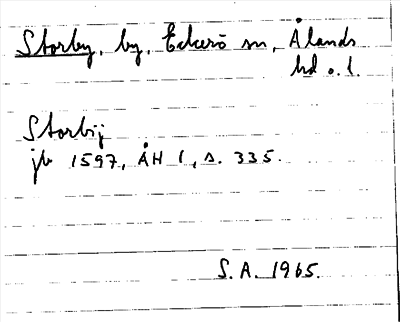 Storby, by, Eckerö sn, Ålands
hd o. l.
Storbij
jb 1597, ÅH 1, s. 335.
S.A. 1965.